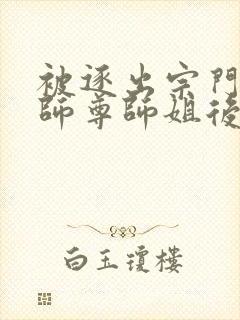 被逐出宗門
師尊師姐後
白玉瓊樓